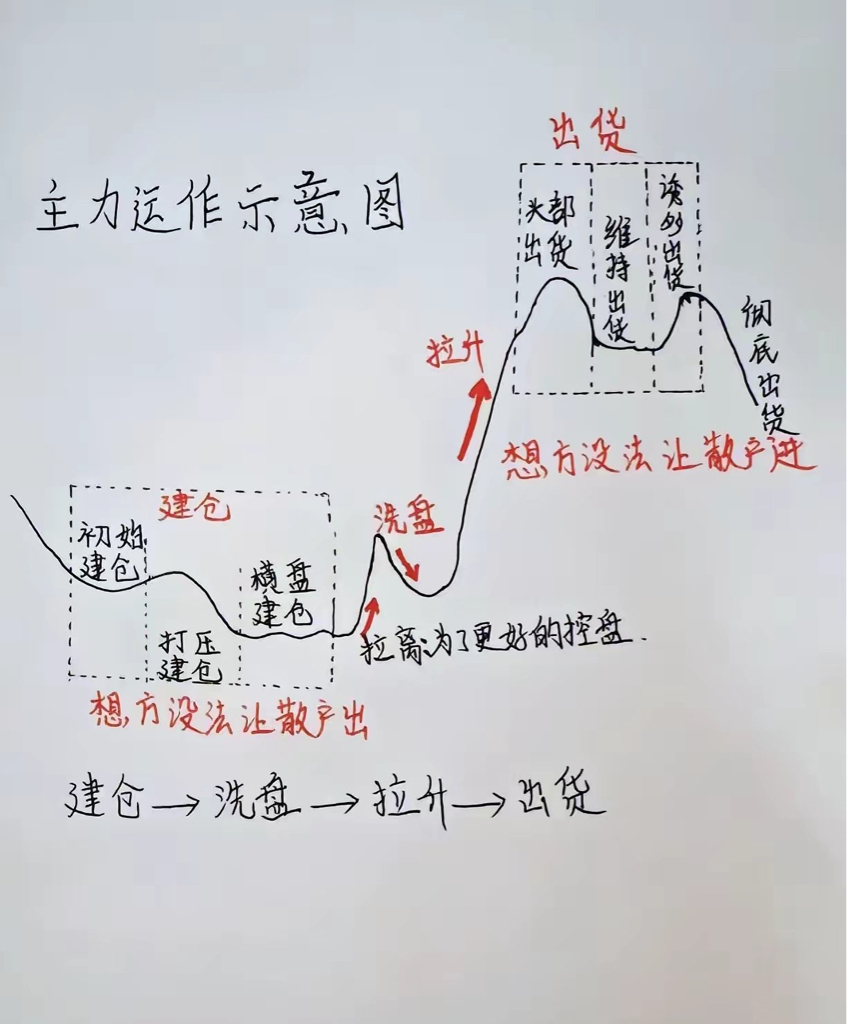 出货
主力运作示意图
头部
出货
维持出货
诱多出货
彻底出货
拉升
想方没法让散户进
建仓
初始
建仓
打压
建仓
横盘
建仓
洗盘
拉离:为了更好的控盘.
想方没法让散户出
建仓→洗盘→拉升→出货